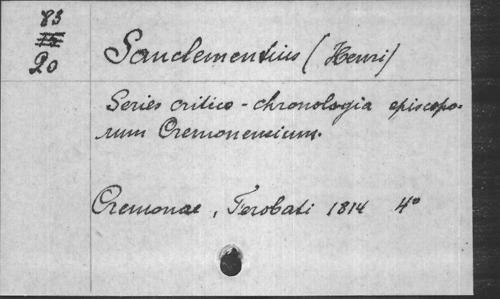 83
15
20
Sanclementius (Henri)
Series critico-chronologia episcopo-
rum Cremonensium.
Cremonae, Ferobati 1814 4°